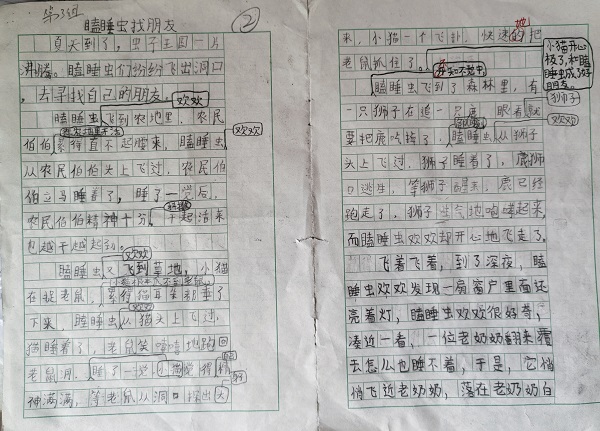 第3组
瞌睡虫找朋友
②
夏天到了，虫子王国一片
沸腾。瞌睡虫们纷纷飞出洞口
，去寻找自己的朋友。
欢欢
瞌睡虫飞到农地里，农民
在农地里干活
欢欢
伯伯累得直不起腰来，瞌睡虫
从农民伯伯头上飞过，农民伯
伯立马睡着了，睡了一觉后，
农民伯伯精神十分。干起活来
也越干越起劲。
欢欢
瞌睡虫又飞到草地，小猫
在捉老鼠，累得猫耳朵都垂了
欢欢
下来，瞌睡虫从猫头上飞过，
猫睡着了，老鼠笑嘻嘻地跑回
老鼠洞。睡了一觉小猫觉得精
神满满，等老鼠从洞口探出头
来，小猫一个飞扑，快速的把
地
老鼠抓住了。
小猫开心
极了，和瞌
睡虫成了好
朋友。
不知不觉中
瞌睡虫飞到了森林里，有
狮子
一只狮子在追一只鹿，眼看就
欢欢
要把鹿吃掉了，瞌睡虫从狮子
头上飞过，狮子睡着了，鹿狮
口逃生，等狮子醒来，鹿已经
跑走了，狮子生气地咆哮起来，
而瞌睡虫欢欢却开心地飞走了。
飞着飞着，到了深夜，瞌
睡虫欢欢发现一扇窗户里面还
亮着灯，瞌睡虫欢欢很好奇，
凑近一看，一位老奶奶翻来覆
去怎么也睡不着，于是，它悄
悄飞近老奶奶，落在老奶奶白